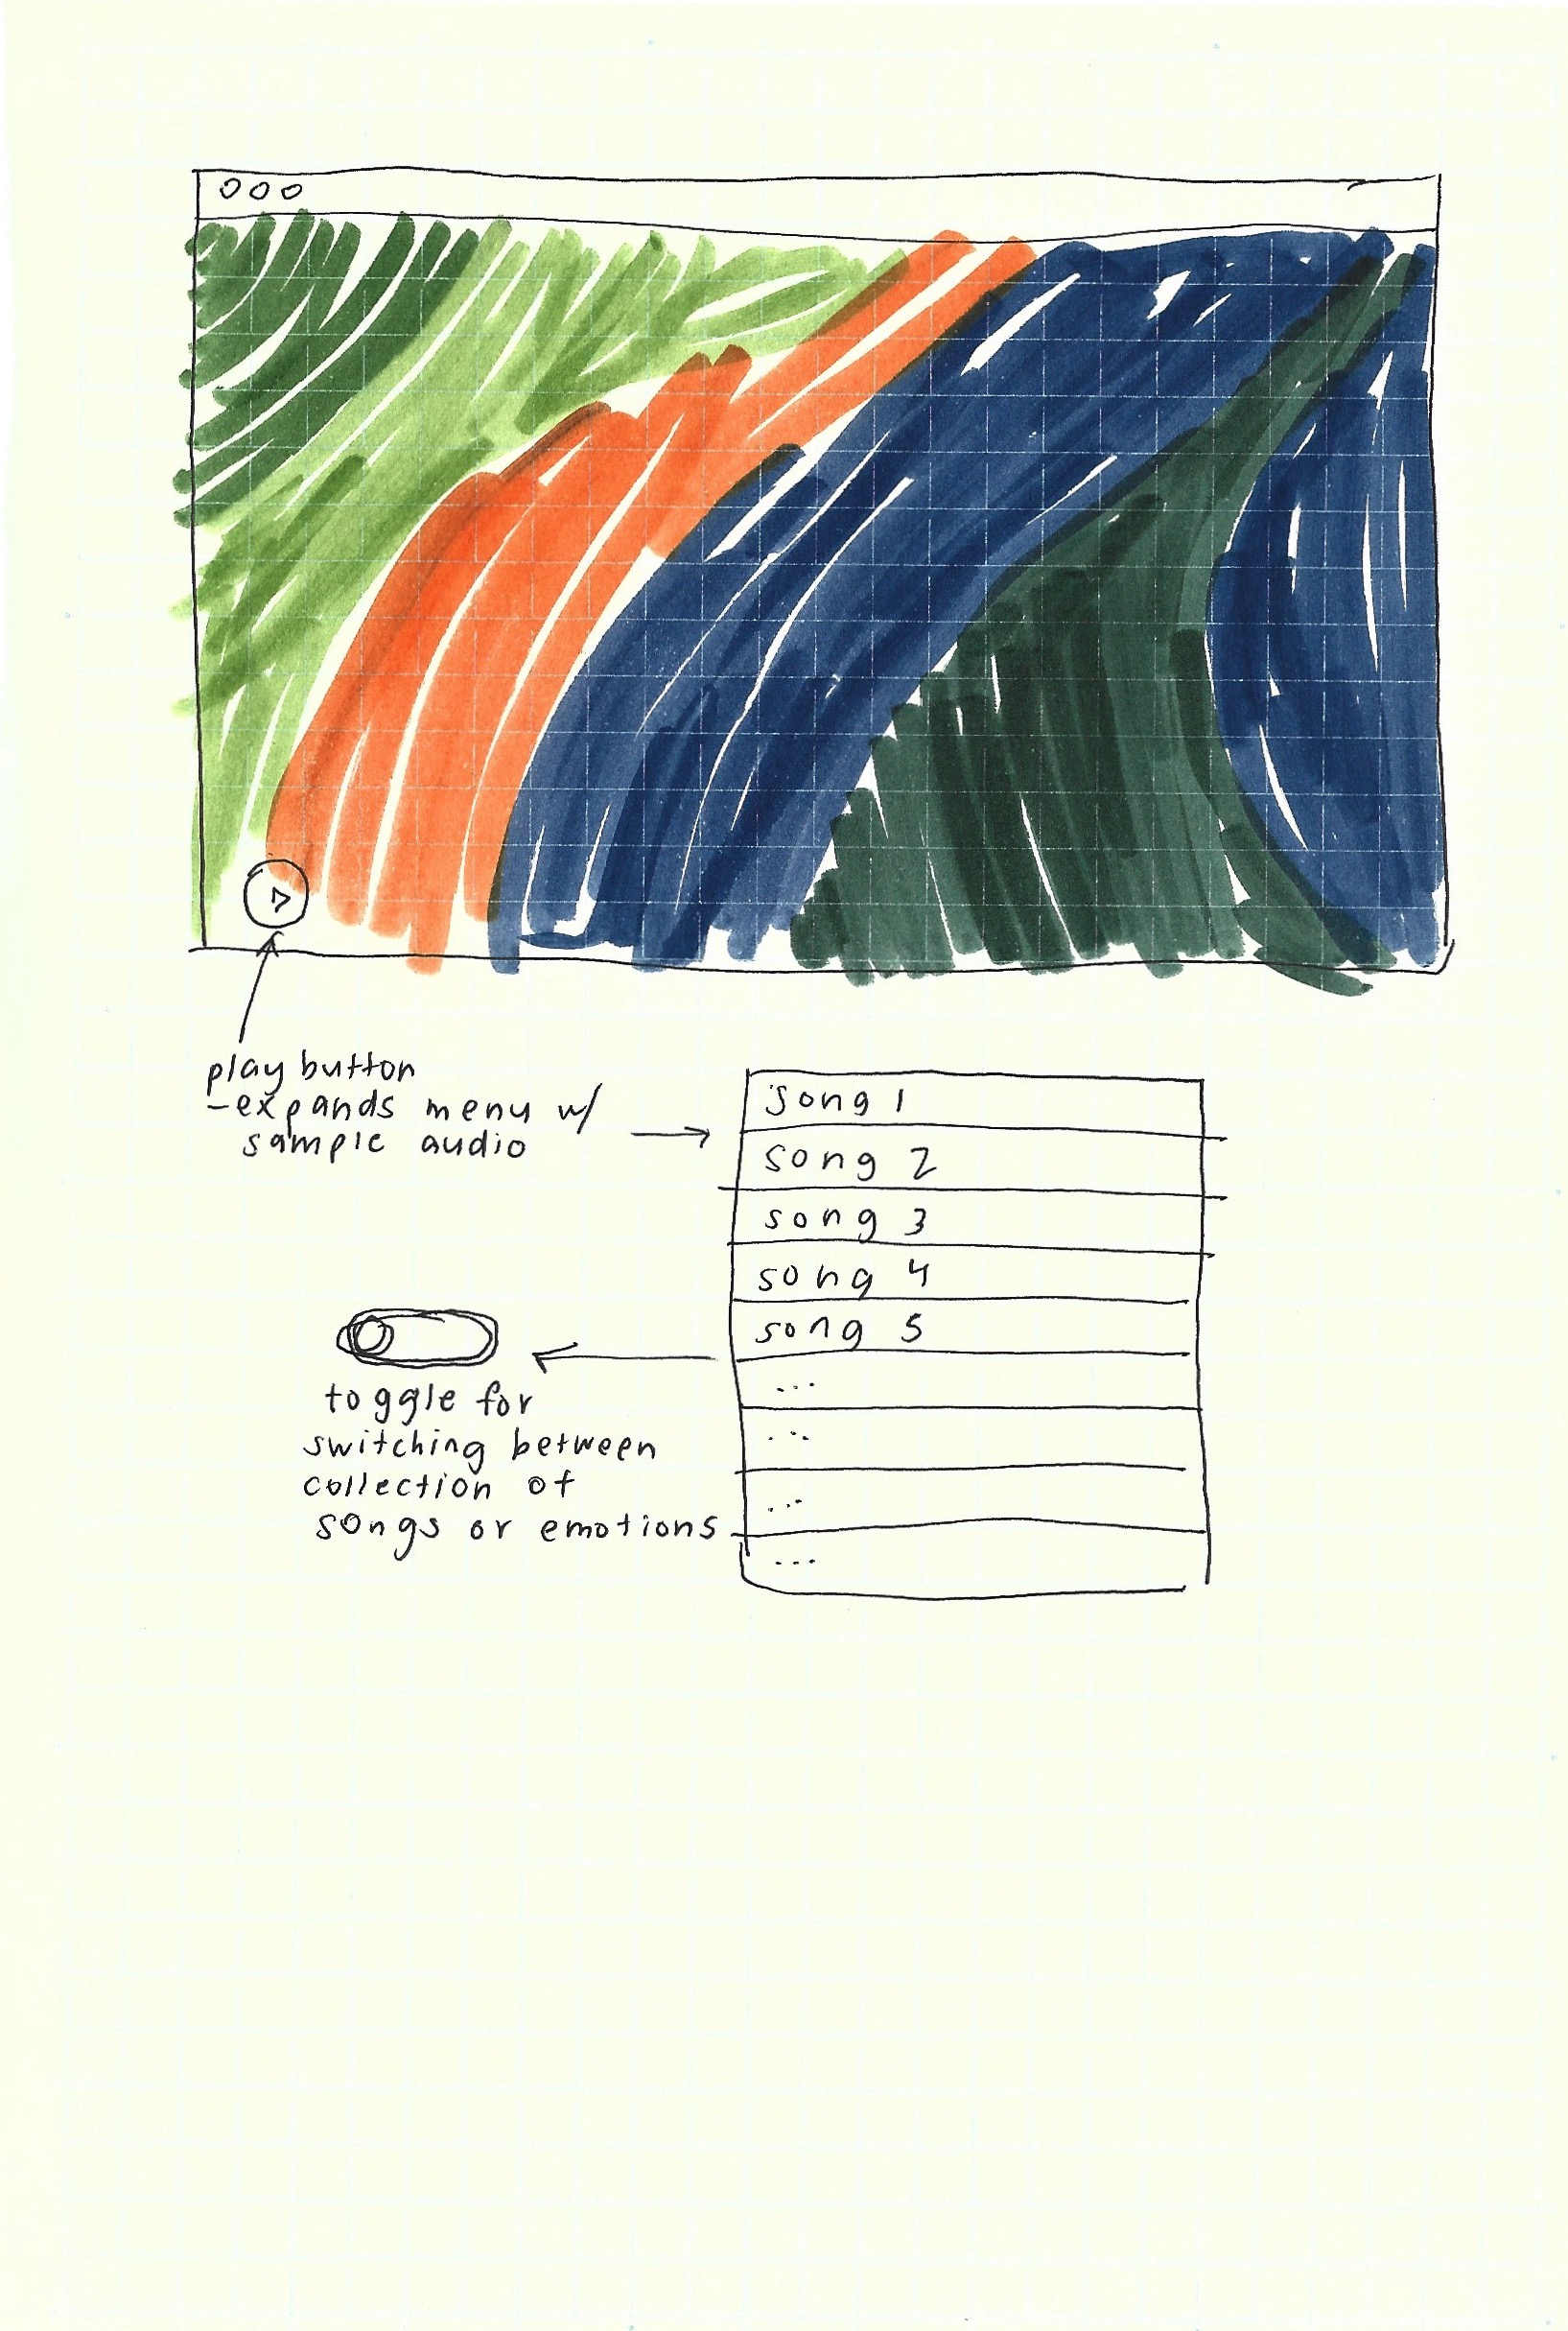 play button
- expands menu w/
sample audio
song 1
song 2
song 3
song 4
song 5
...
...
...
...
toggle for
switching between
collection of
songs or emotions